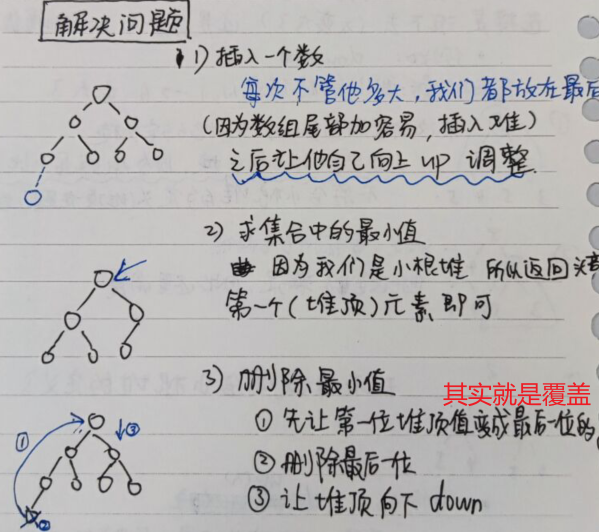 解决问题
1) 插入一个数
每次不管他多大，我们都放在最后
(因为数组尾部加容易，插入难)
之后让他自己向上 up 调整.
2) 求集合中的最小值
因为我们是小根堆 所以返回
第一个(堆顶)元素即可
3) 删除最小值
其实就是覆盖
① 先让第一位堆顶值变成最后一位的
② 删除最后一位
③ 让堆顶向下 down
①
③
②